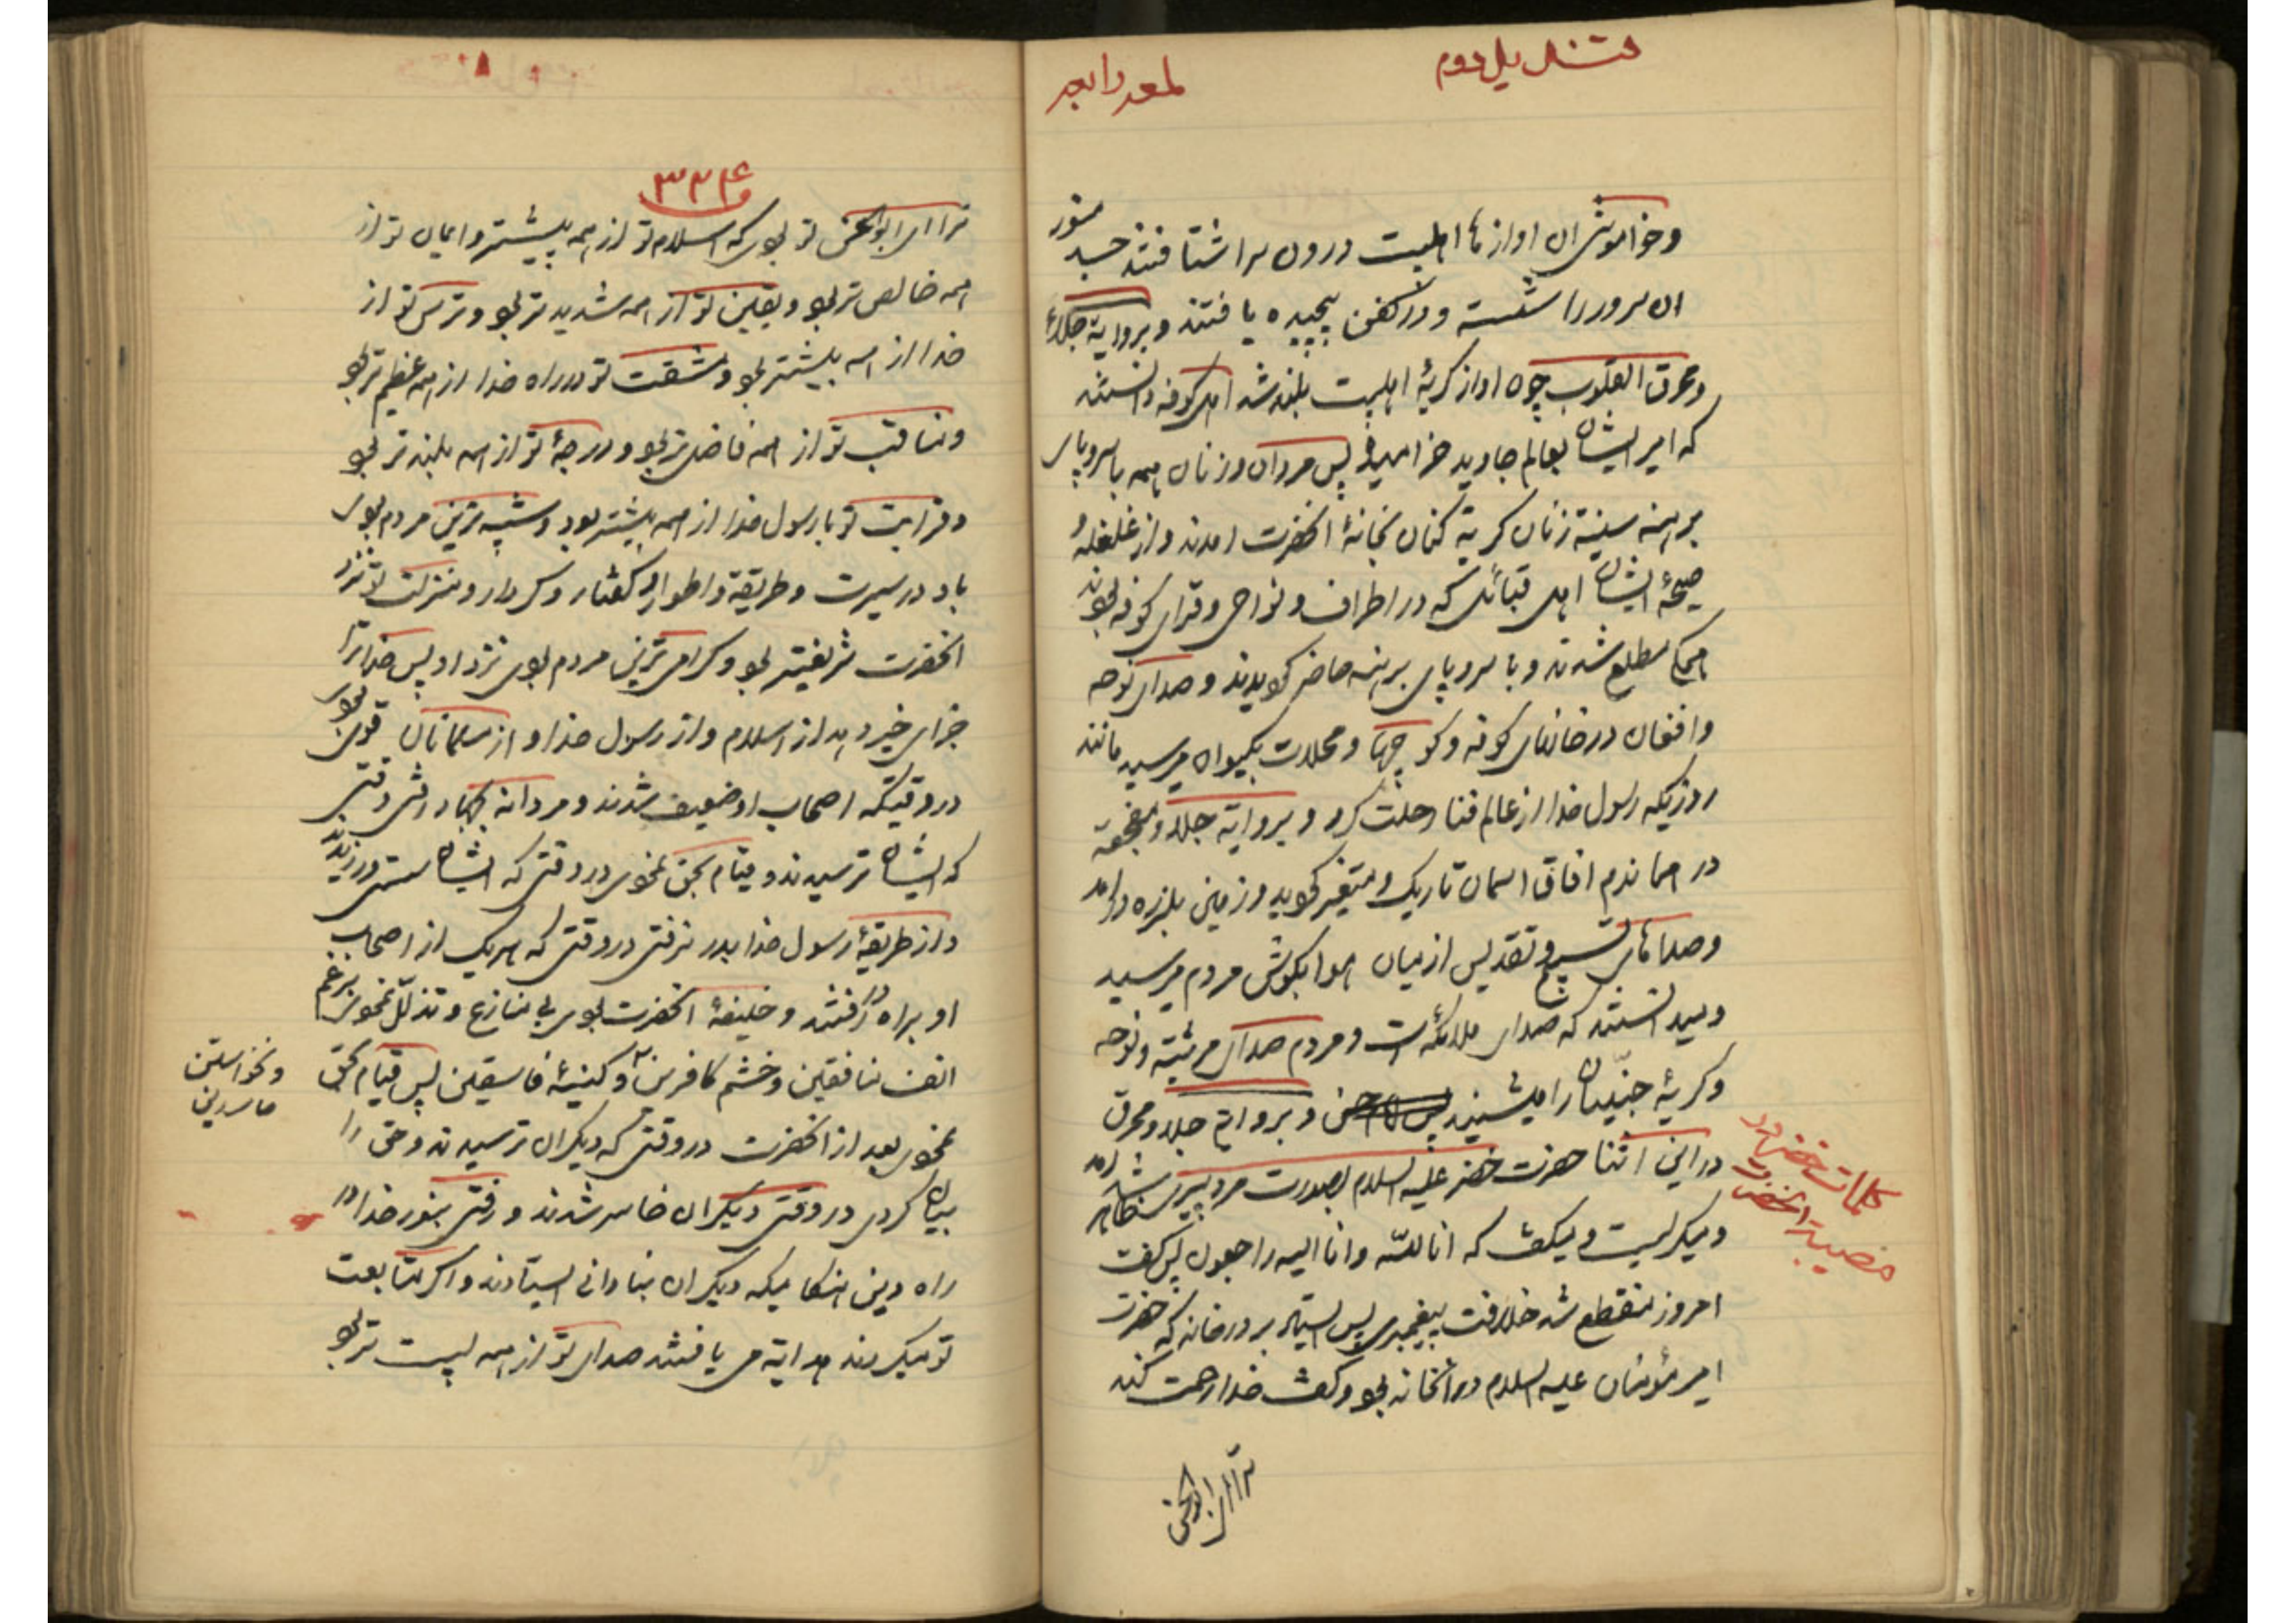 قندیل دوم
لمعه رابعه
وخاموشی ان اوازها اهلبیت درون سرا شتافتند جسد منور
ان سرور را شسته و در کفن پیچیده یافتند و بروایة جلاء
ومحرق القلوب چون اواز کریهٔ اهلبیت بلند شد اهل کوفه دانستند
که امیر ایشان بعالم جاوید خرامید پس مردان و زنان همه با سروپای
برهنه سینه زنان کریه کنان بخانهٔ انحضرت امدند و از غلغله و
صیحهٔ ایشان اهل قبائل که در اطراف و نواحی و قرای کوفه بودند
همکی مطلع شدند و با سروپای برهنه حاضر کردیدند و صدای نوحه
وافغان در خانهای کوفه و کوچها و محلات بکیوان میرسید مانند
روزیکه رسول خدا از عالم فنا رحلت کرد و بروایة جلاء و مفجعه
در همان دم افاق اسمان تاریک و متغیر کردید و زمین بلرزه درامد
وصداهای تسبیح و تقدیس از میان هوا بکوش مردم میرسید
ومیدانستند که صدای ملائکه است و مردم صدای مرثیه و نوحه
وکریهٔ جنیان را میشنیدند و بروایة جلاء و محرق
در این اثنا حضرت خضر علیه السلام بصورت مرد پیری ظاهر شد
ومیکریست و میکفت که انا لله وانا الیه راجعون پس کفت
امروز منقطع شد خلافت پیغمبری پس ایستاد بر در خانه که حضرت
امیر مؤمنان علیه السلام در انخانه بود و کفت خدا رحمت کند
کلمات خضر در
مصیبت انحضرت
ترا ای ابوالحسن
۳۳۴
ترا ای ابوالحسن تو بودی که اسلام تو از همه پیشتر و ایمان تو از
همه خالص تر بود و یقین تو از همه شدید تر بود و ترس تو از
خدا از همه بیشتر بود و مشقت تو در راه خدا از همه عظیم تر بود
ومناقب تو از همه فاضل تر بود و درجهٔ تو از همه بلند تر بود
وقرابت تو با رسول خدا از همه بیشتر بود و شبیه ترین مردم بودی
باو در سیرت و طریقة و اطوار و کفتار و کردار و منزلت تو نزد
انحضرت شریفتر بود و کرامی ترین مردم بودی نزد او پس خدا ترا
جزای خیر دهد از اسلام و از رسول خدا و از مسلمانان قوی بودی
در وقتیکه اصحاب او ضعیف شدند و مردانه بجهاد رفتی وقتی
که ایشان ترسیدند و قیام بحق نمودی در وقتی که ایشان سستی ورزیدند
و از طریقهٔ رسول خدا بدر نرفتی در وقتی که هریک از اصحاب
او براه در رفتند و خلیفهٔ انحضرت بودی بی منازع و تذلل نمودی برغم
انف منافقین و خشم کافرین و کینهٔ فاسقین پس قیام بحق
نمودی بعد از انحضرت در وقتی که دیکران ترسیدند و حق را
بیان کردی در وقتی دیکران خاسر شدند و رفتی بنور خدا در
راه دین هنکامیکه دیکران بنادانی ایستادند و اکر متابعت
تو میکردند هدایة می یافتند صدای تو از همه پست تر بود
ونخواستن
حاسدین